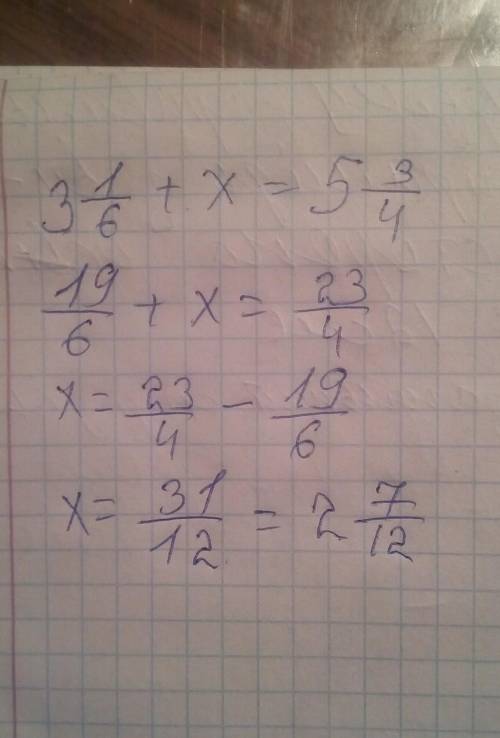 3 1/6 + x = 5 3/4
19/6 + x = 23/4
x = 23/4 - 19/6
x = 31/12 = 2 7/12